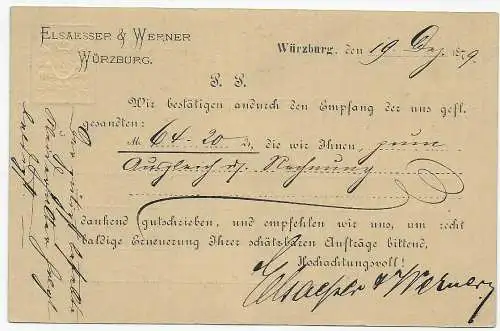 ELSAESSER & WERNER
WÜRZBURG.
Würzburg, den 19 Dez. 1879.
P. P.
Wir bestätigen andurch den Empfang der uns gefl.
gesandten:
M. 64.20 die wir Ihnen, zum
Ausgleich d/ Rechnung
dankend gutschrieben, und empfehlen wir uns, um recht
baldige Erneuerung Ihrer schätsbaren Aufträge bittend,
Hochachtungsvoll!
Elsaesser & Werner